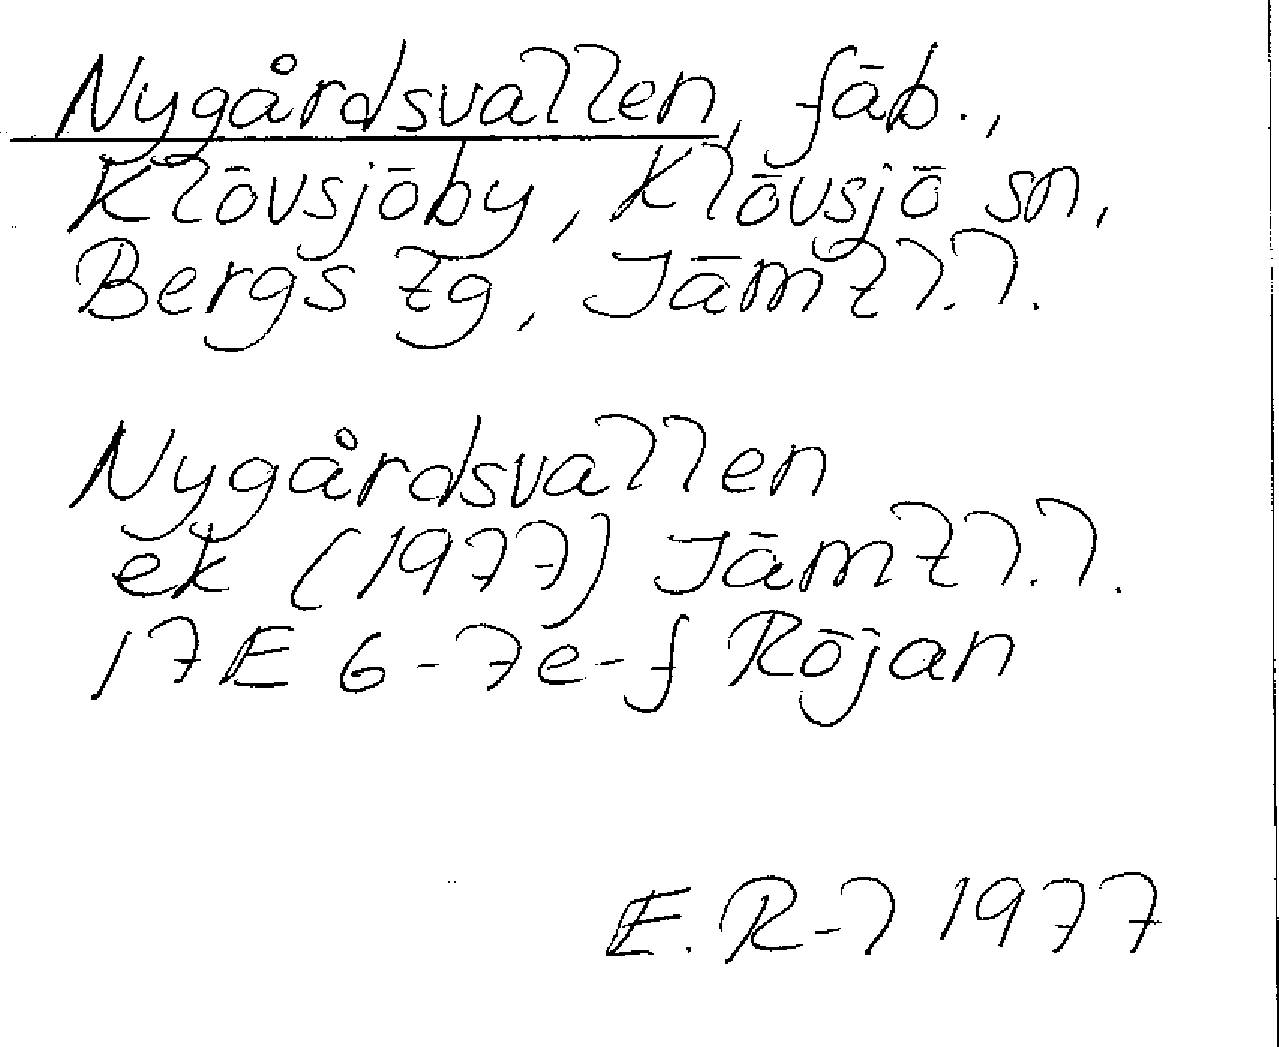 Nygårdsvallen, fäb.,
Klövsjöby, Klövsjö sn,
Bergs tg, Jämtl.l.
Nygårdsvallen
ek (1977) Jämtl.l.
17E 6-7e-f Röjan
E.R-l 1977